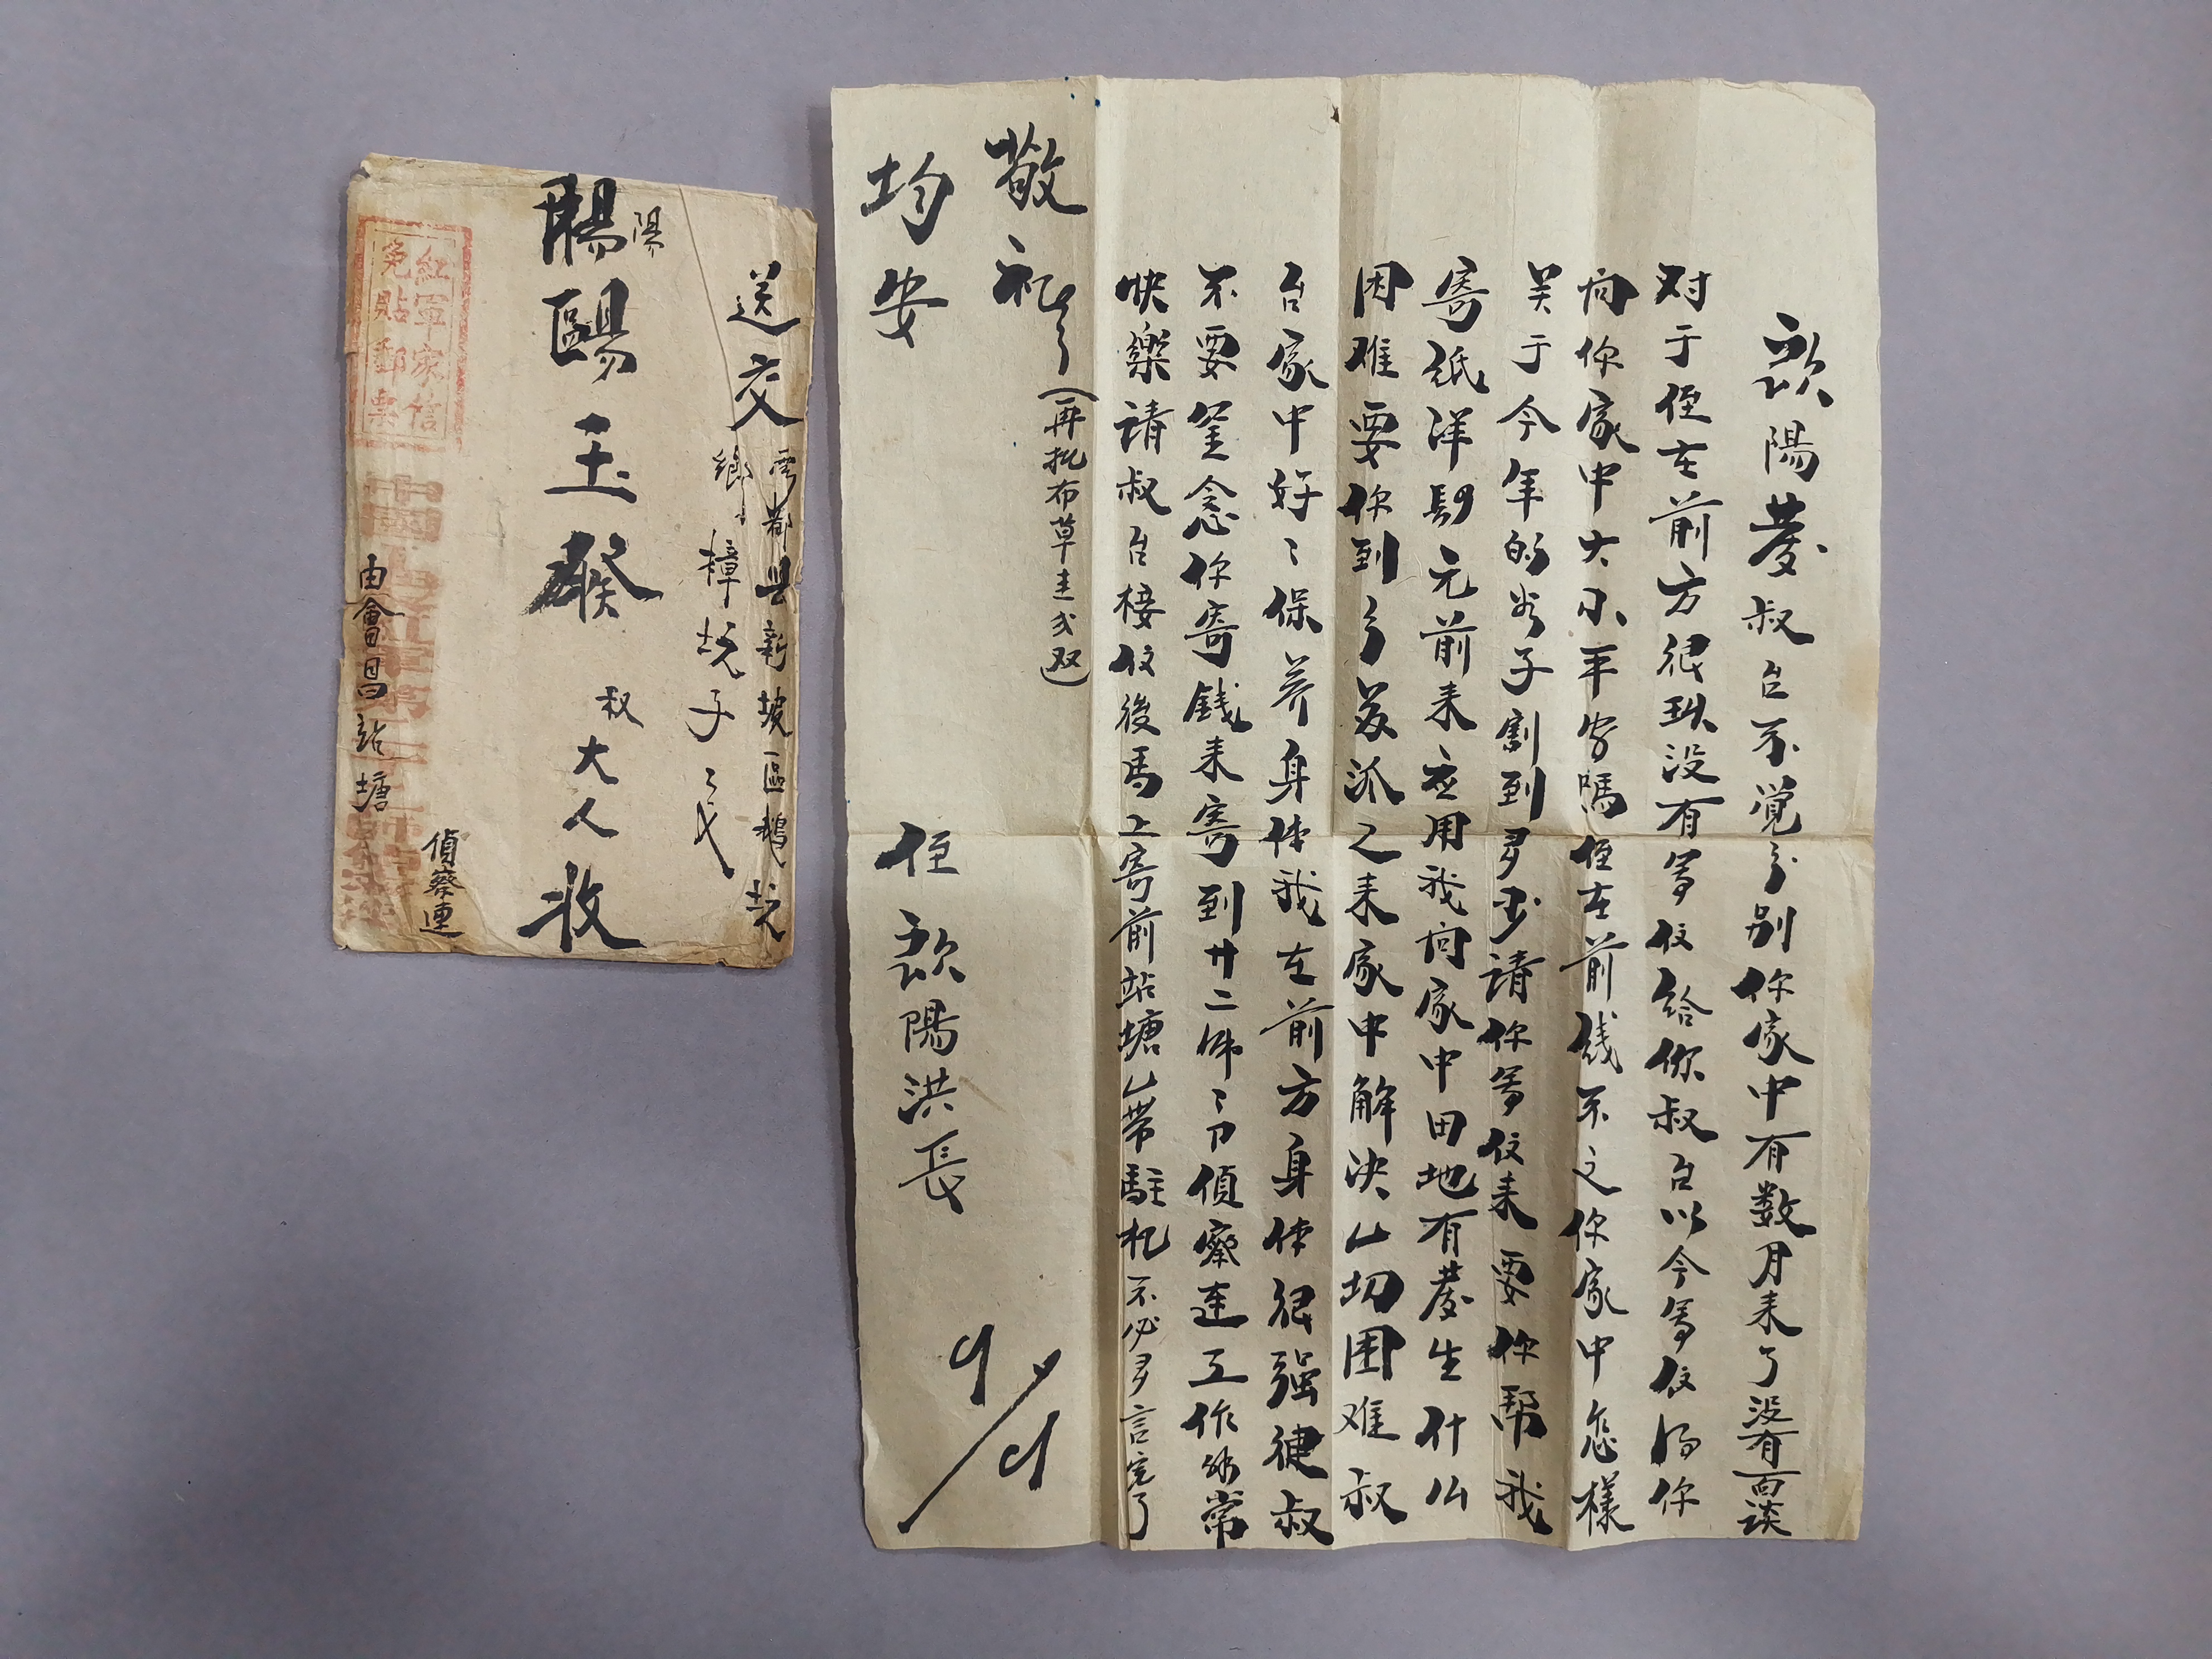 送交
雩都县新坡區鵝坑
鄉樟坑子
陽
玉發
叔大人
收
紅軍家信
免貼郵票
由會昌站塘
偵察連
欧陽發叔台不覚分别你家中有数月来了没有面谈
对于侄在前方很
没有写信给你叔台以今写信
你
问你家中大小平安嗎侄在前线不之你家中怎樣
关于今年的谷子割到多少请你写信来要你帮我
寄紙洋
元前来应用我问家中田地有發生什么
困难要你到乡
派之来家中解决一切困难叔
台家中好々保养身体我在前方身体很强健叔
不要
念你寄錢来寄到廿二师
偵察連工作
常
快樂请叔台接信後馬上寄前站塘一带駐札不必多言完了
敬礼了
(再批布草
双)
均安
侄 欧陽洪長